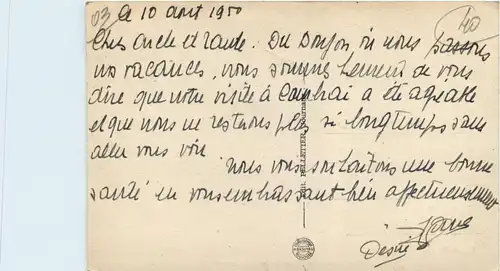 03 Le 10 août 1950
40
Cher oncle et tante. Du Donjon, où nous passons
nos vacances, nous sommes heureux de vous
dire que notre visite à Cambrai a été agréable
et que nous ne resterons plus si longtemps sans
aller vous voir.
Nous vous souhaitons une bonne
santé en vous embrassant bien affectueusement
Désiré
Edit. PELLETIER